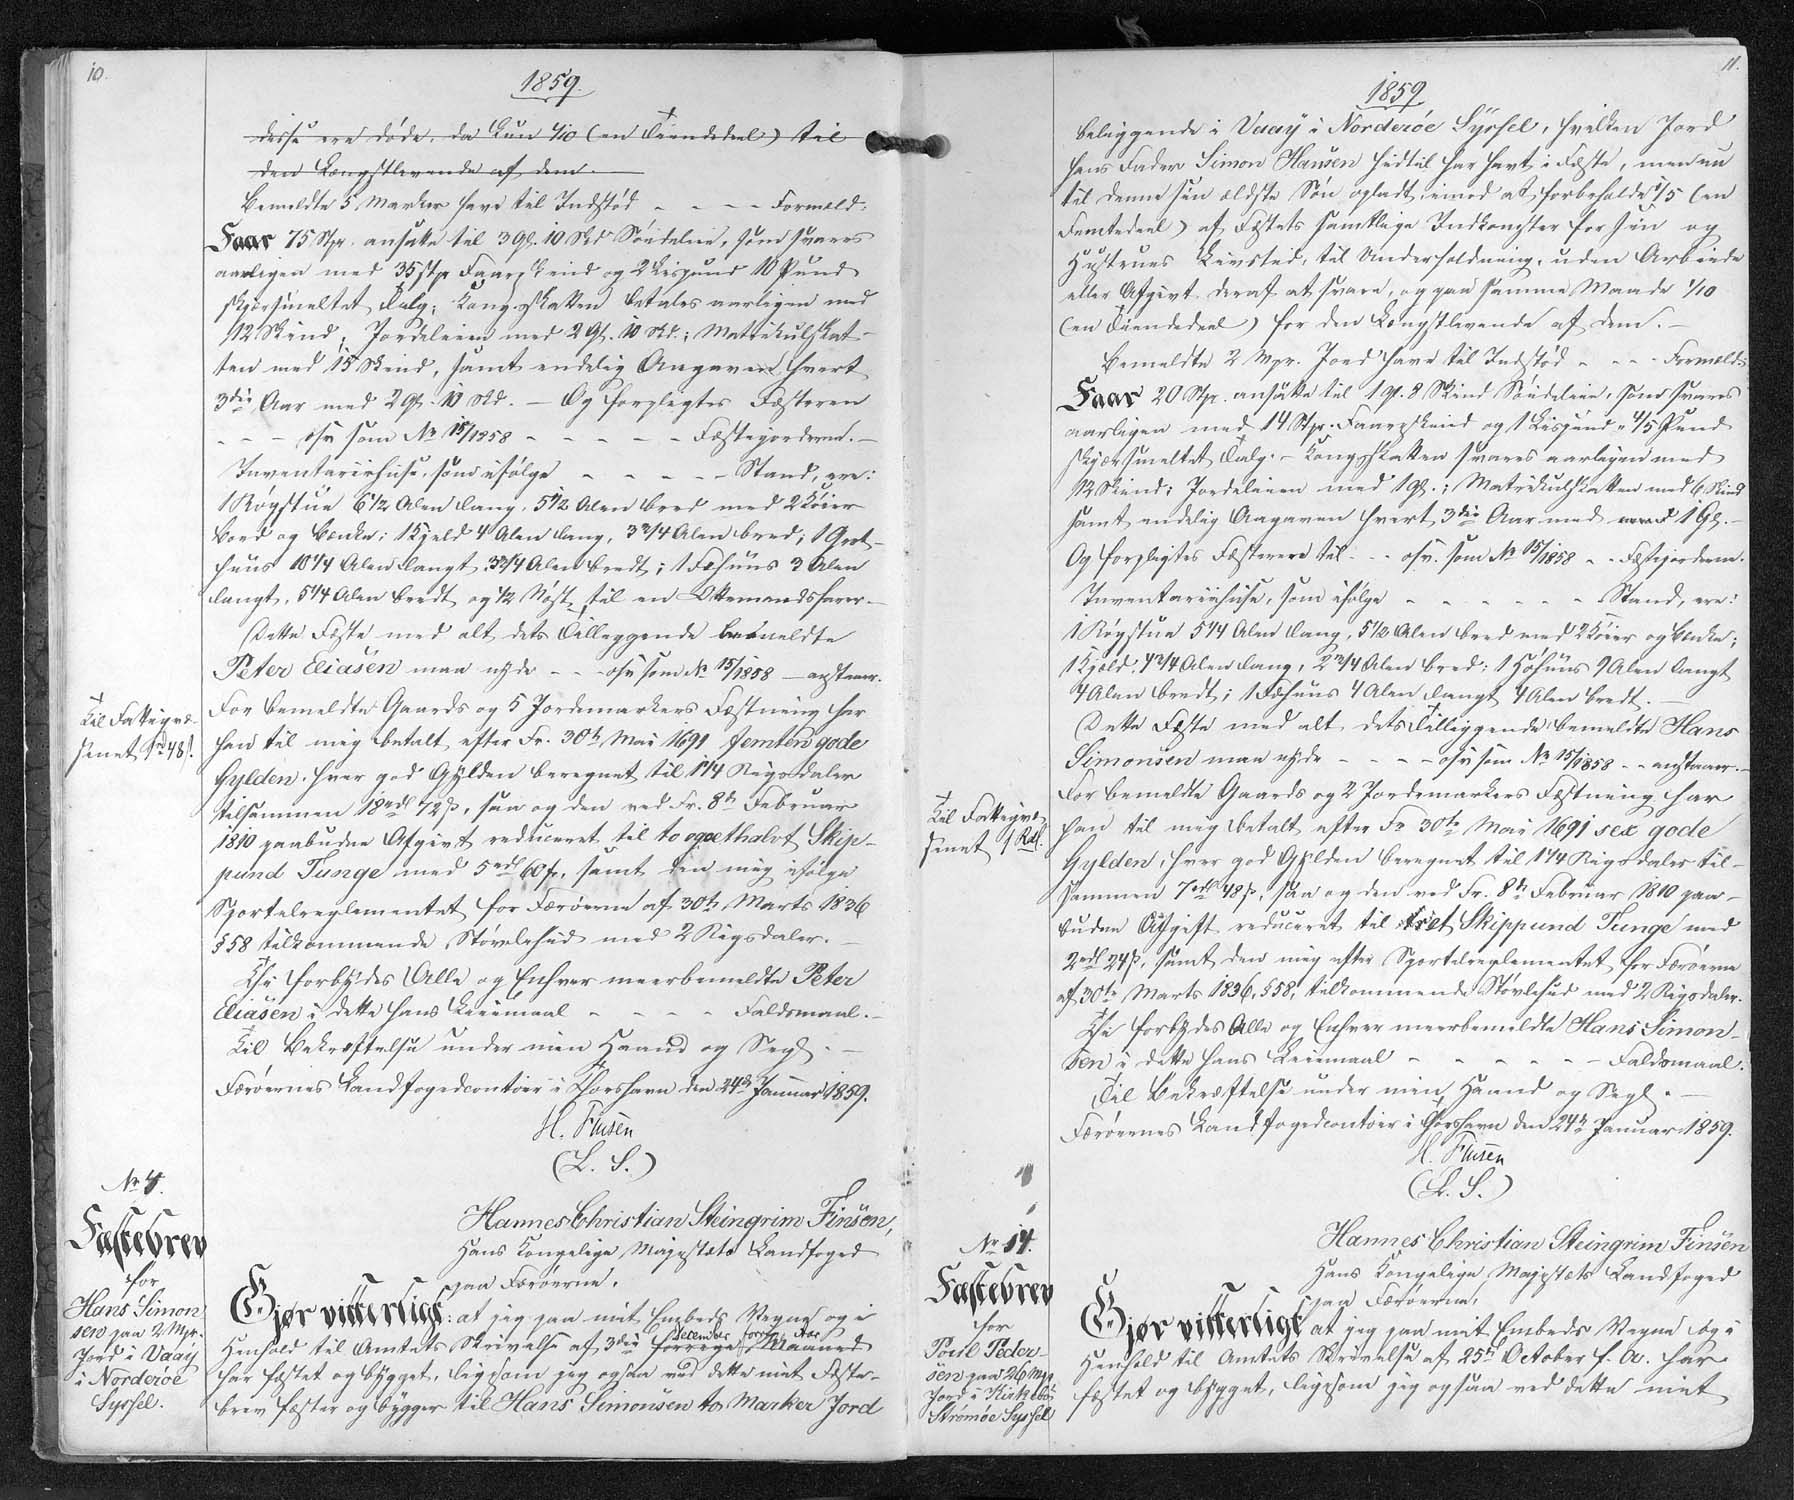 10.
1859.
disse ere døde, da kun 1/10 (en Tiendedeel) til
den Længstlevende af dem.
Bemeldte 5 Marker have til Indstød - - - - Formeld.
Faar 75 Stpr. ansatte til 3 Gl. 10 Skd Söndeleie, som svares
aarligen med 35 stpr Faareskind og 2 Lispund 10 Pund
skjørsmeltet Talg; Kongsskatten betales aarligen med
12 Skind; Jordeleien med 2 Gl. 10 Skd.; Matrikulskat-
ten med 15 Skind, samt endelig Angaven hvert
3die Aar med 2 Gl. 10 Skd. — Og forpligtes Fæsteren
- - - osv som No 15/1858 - - - - - Fæstejorderne. —
Inventariihuse, som ifølge - - - - - Stand, ere:
1 Røgstue 6 1/2 Alen lang, 5 1/2 Alen bred med 2 Köier
Bord og Bænke; 1 Kjeld 4 Alen lang, 3 3/4 Alen bred; 1 Grot-
huus 10 1/4 Alen langt 3 3/4 Alen bredt; 1 Fæhuus 3 Alen
langt, 5 1/4 Alen bredt og 1/2 Nøst til en Ottemandsfarer.
Dette Fæste med alt dets Tilleggende bemeldte
Peter Eliasen maa nyde - - - osv som No 15/1858 — anstaaer.
For bemeldte Gaards og 5 Jordemarkers Fæstning har
han til mig betalt efter Fr. 30te Mai 1691 femten gode
Gylden, hver god Gylden beregnet til 1 1/4 Rigsdaler
tilsammen 18 rdl 72 ß, saa og den ved Fr. 8de Februar
1810 paabudne Afgivt reduceret til to og et halvt Skip-
pund Tunge med 5 rdl 60 ß, samt den mig ifølge
Sportelreglementet for Færøerne af 30te Marts 1836
§ 58 tilkommende Støvlehud med 2 Rigsdaler. —
Thi forbydes Alle og Enhver meerbemeldte Peter
Eliasen i dette hans Leiemaal - - - - Faldsmaal. —
Til Bekræftelse under min Haand og Segl. —
Færøernes Landfogedcontoir i Thorshavn den 24de Januar 1859.
H. Finsen
(L. S.)
Til Fattigvæ-
senet 48 ß.
No 4.
Fæstebrev
for
Hans Simon
sen paa 2 Mpr.
Jord i Vaay
i Norderöe
Syssel.
Hannes Christian Steingrim Finsen,
Hans Kongelige Majestæts Landfoged
paa Færöerne,
Gjør vitterligt: at jeg paa mit Embeds Vegne og i
Henhold til Amtets Skrivelse af 3die forrige Maaned December forrige Aar
har fæstet og bygget, ligesom jeg ogsaa ved dette mit Fæste-
brev fæster og bygger til Hans Simonsen to Marker Jord
11.
1859
beliggende i Vaay i Norderöe Syssel, hvilken Jord
hans Fader Simon Hansen hidtil har havt i Fæste, men nu
til denne sin ældste Søn opladt, imod at forbeholde 1/5 (en
Femtedeel) af Fæstets samtlige Indkomster for sin og
Hustrues Livstid, til Underholdning, uden Arbeide
eller Afgivt deraf at svare, og paa samme Maade 1/10
(en Tiendedeel) for den Længstlevende af dem. —
Bemeldte 2 Mpr. Jord have til Indstød - - - Formeld.
Faar 20 Stpr. ansatte til 1 Gl. 8 Skind Söndeleie, som svares
aarligen med 14 Stpr. Faareskind og 1 Lispund 4/5 Pund
skjørsmeltet Talg. — Kongsskatten svares aarligen med
12 Skind; Jordeleien med 1 Gl.; Matrikulskatten med 6 Skind
samt endelig Angaven hvert 3die Aar med 1 Gl. —
Og forpligtes Fæsteren til - - osv. som No 15/1858 - - Fæstejorderne.
Inventariihuse, som ifølge - - - - - - Stand, ere:
1 Røgstue 5 1/4 Alen lang, 5 1/2 Alen bred med 2 Köier og Bænke;
1 Kjeld 4 3/4 Alen lang, 2 3/4 Alen bred; 1 Höhuus 9 Alen langt
4 Alen bredt; 1 Fæhuus 4 Alen langt 4 Alen bredt. —
Dette Fæste med alt dets Tilliggende bemeldte Hans
Simonsen maa nyde - - - - osv som No 15/1858 - - anstaaer. —
For bemeldte Gaards og 2 Jordemarkers Fæstning har
han til mig betalt efter Fr 30te Mai 1691 sex gode
Gylden, hver god Gylden beregnet til 1 1/4 Rigsdaler til-
sammen 7 rdl 48 ß, saa og den ved Fr. 8de Februar 1810 paa-
budne Afgift reduceret til eet Skippund Tunge med
2 rdl 24 ß, samt den mig efter Sportelreglementet for Færöerne
af 30te Marts 1836, § 58, tilkommende Støvlehud med 2 Rigsdaler.
Thi forbydes Alle og Enhver meerbemeldte Hans Simon-
sen i dette hans Leiemaal - - - - - - Faldsmaal.
Til Bekræftelse under min Haand og Segl. —
Færöernes Landfogedcontoir i Thorshavn den 24de Januar 1859.
H. Finsen
(L. S.)
Til Fattigvæ-
senet 1 Rdl.
No 14.
Fæstebrev
for
Poul Peder-
sen paa 26 Mpr
Jord i Kirkebö
Strömöe Syssel
Hannes Christian Steingrim Finsen
Hans Kongelige Majestæts Landfoged
paa Færöerne,
Gjør vitterligt at jeg paa mit Embeds Vegne og i
Henhold til Amtets Skrivelse af 25de October f. A. har
fæstet og bygget, ligesom jeg ogsaa ved dette mit